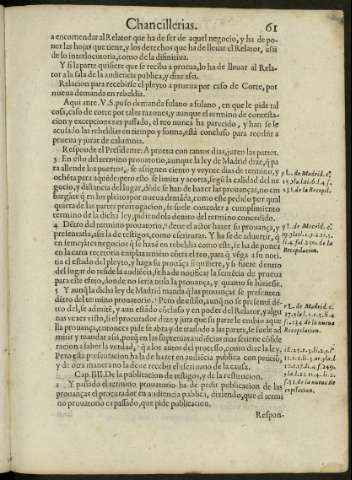 Chancillerias. 61
a encomendar al Relator que ha de ser de aquel negocio, y ha de po-
ner las hojas que tiene, y los derechos que ha de lleuar el Relator, assi
de lo interlocutorio, como de la difinitiua.
Y si la parte quisiere que se reciba a prueua, lo ha de lleuar al Rela-
tor a la sala de la audiencia publica, y dize assi.
Relacion para recebirse el pleyto a prueua por caso de Corte, por
nueua demanda en rebeldia.
Aqui ante V.S. puso demanda fulano a fulano, en que le pide tal
cosa, caso de corte por tales razones, y aunque el termino de contesta-
cion y excepciones es passado, el reo nunca ha parecido, y han se le
acusado las rebeldias en tiempo y forma, està concluso para recebir a
prueua y jurar de calumnia.
Responde el Presidente: A prueua con tantos dias, juren las partes.
3 En esto del termino prouatorio, aunque la ley de Madrid dize, q̃ pa
ra allende los puertos, se assignen ciento y veynte dias de termino, y
ochẽta para aquende: pero esto se limita y acorta, segũ la calidad del ne
gocio, y distancia del lugar, dõde se han de hazer las prouanças, no em
bargãte q̃ en los pleytos por nueua demãda, como este pedido por qual
quiera de las partes prorrogacion, se suele conceder a cumplimiento
termino de la dicha ley, pidiendola dentro del termino concedido.
4 Dẽtro del termino prouatorio, deue el actor hazer su prouança, y
presentarla, assi la de testigos, como de escrituras. Y se ha de aduertir, q̃
en semejãtes negocios q̃ se hazẽ en rebeldia como este, se ha de poner
en la carta recetoria emplazamiento cõtra el reo, para q̃ vẽga a su noti-
cia el estado del pleyto, y haga su prouãça si quisiere, y si fuere dentro
del lugar do reside la audiẽcia, se ha de notificar la sentẽcia de prueua
para este efeto, sonde no seria nula la prouança, y quanto se hiziesse.
5 Y aunq̃ la dicha ley de Madrid manda q̃ las prouãças se presenten
dẽtro del termino prouatorio. Pero de estilo, aunq̃ no se presentẽ dẽ-
tro del, se admitẽ, y aun estãdo cõcluso y en poder del Relator, y algu
nas vezes visto, si el procurador dize y jura que su parte le embio aque
lla prouança, entonces pide se abra y dè traslado a las partes, se suele ad
mitir y mandar assi, porq̃ en las supremas audiẽcias mas se tiene cõside
racion a saber la verdad, q̃ a los autos del processo, como dize la ley,
Pero esta presentacion ha la de hazer en audiẽcia publica con peticiõ,
y de otra manera no la deue recebir el escriuano de la causa.
Cap. IIII. De la publicacion de testigos, y de la restitucion.
1 Y passado el termino prouatorio ha de pedir publicacion de las
prouanças el procurador en audiencia publica, diziendo, que el termi
no prouatorio es passado, que pide publicacion.
Respon-